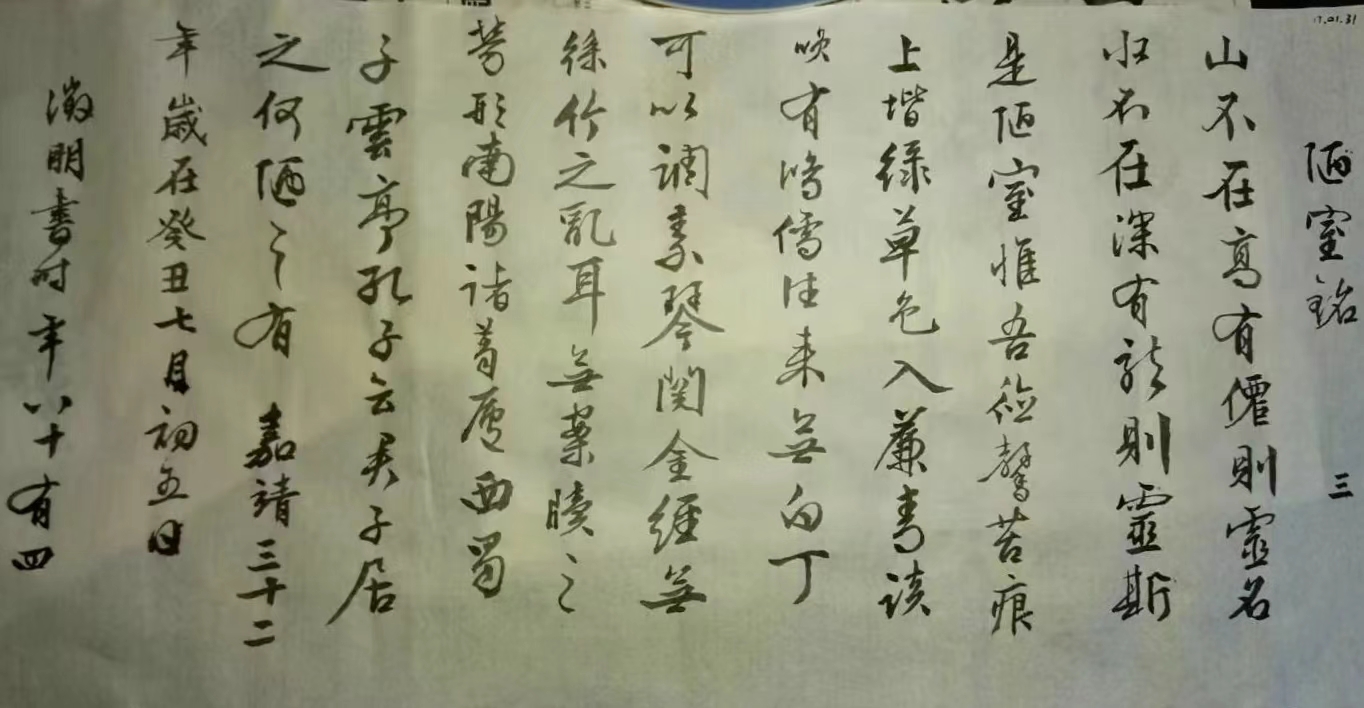 17.01.31
陋室銘 三
山不在高有僊則靈名
水不在深有龍則靈斯
是陋室惟吾德馨苔痕
上堦緑草色入簾青談
唉有鴻儒往来無白丁
可以調素琴閱金經無
絲竹之亂耳無案牘之
勞形南陽諸葛廬西蜀
子雲亭孔子云君子居
之何陋之有 嘉靖三十二
年歲在癸丑七月初五日
徵明書时年八十有四